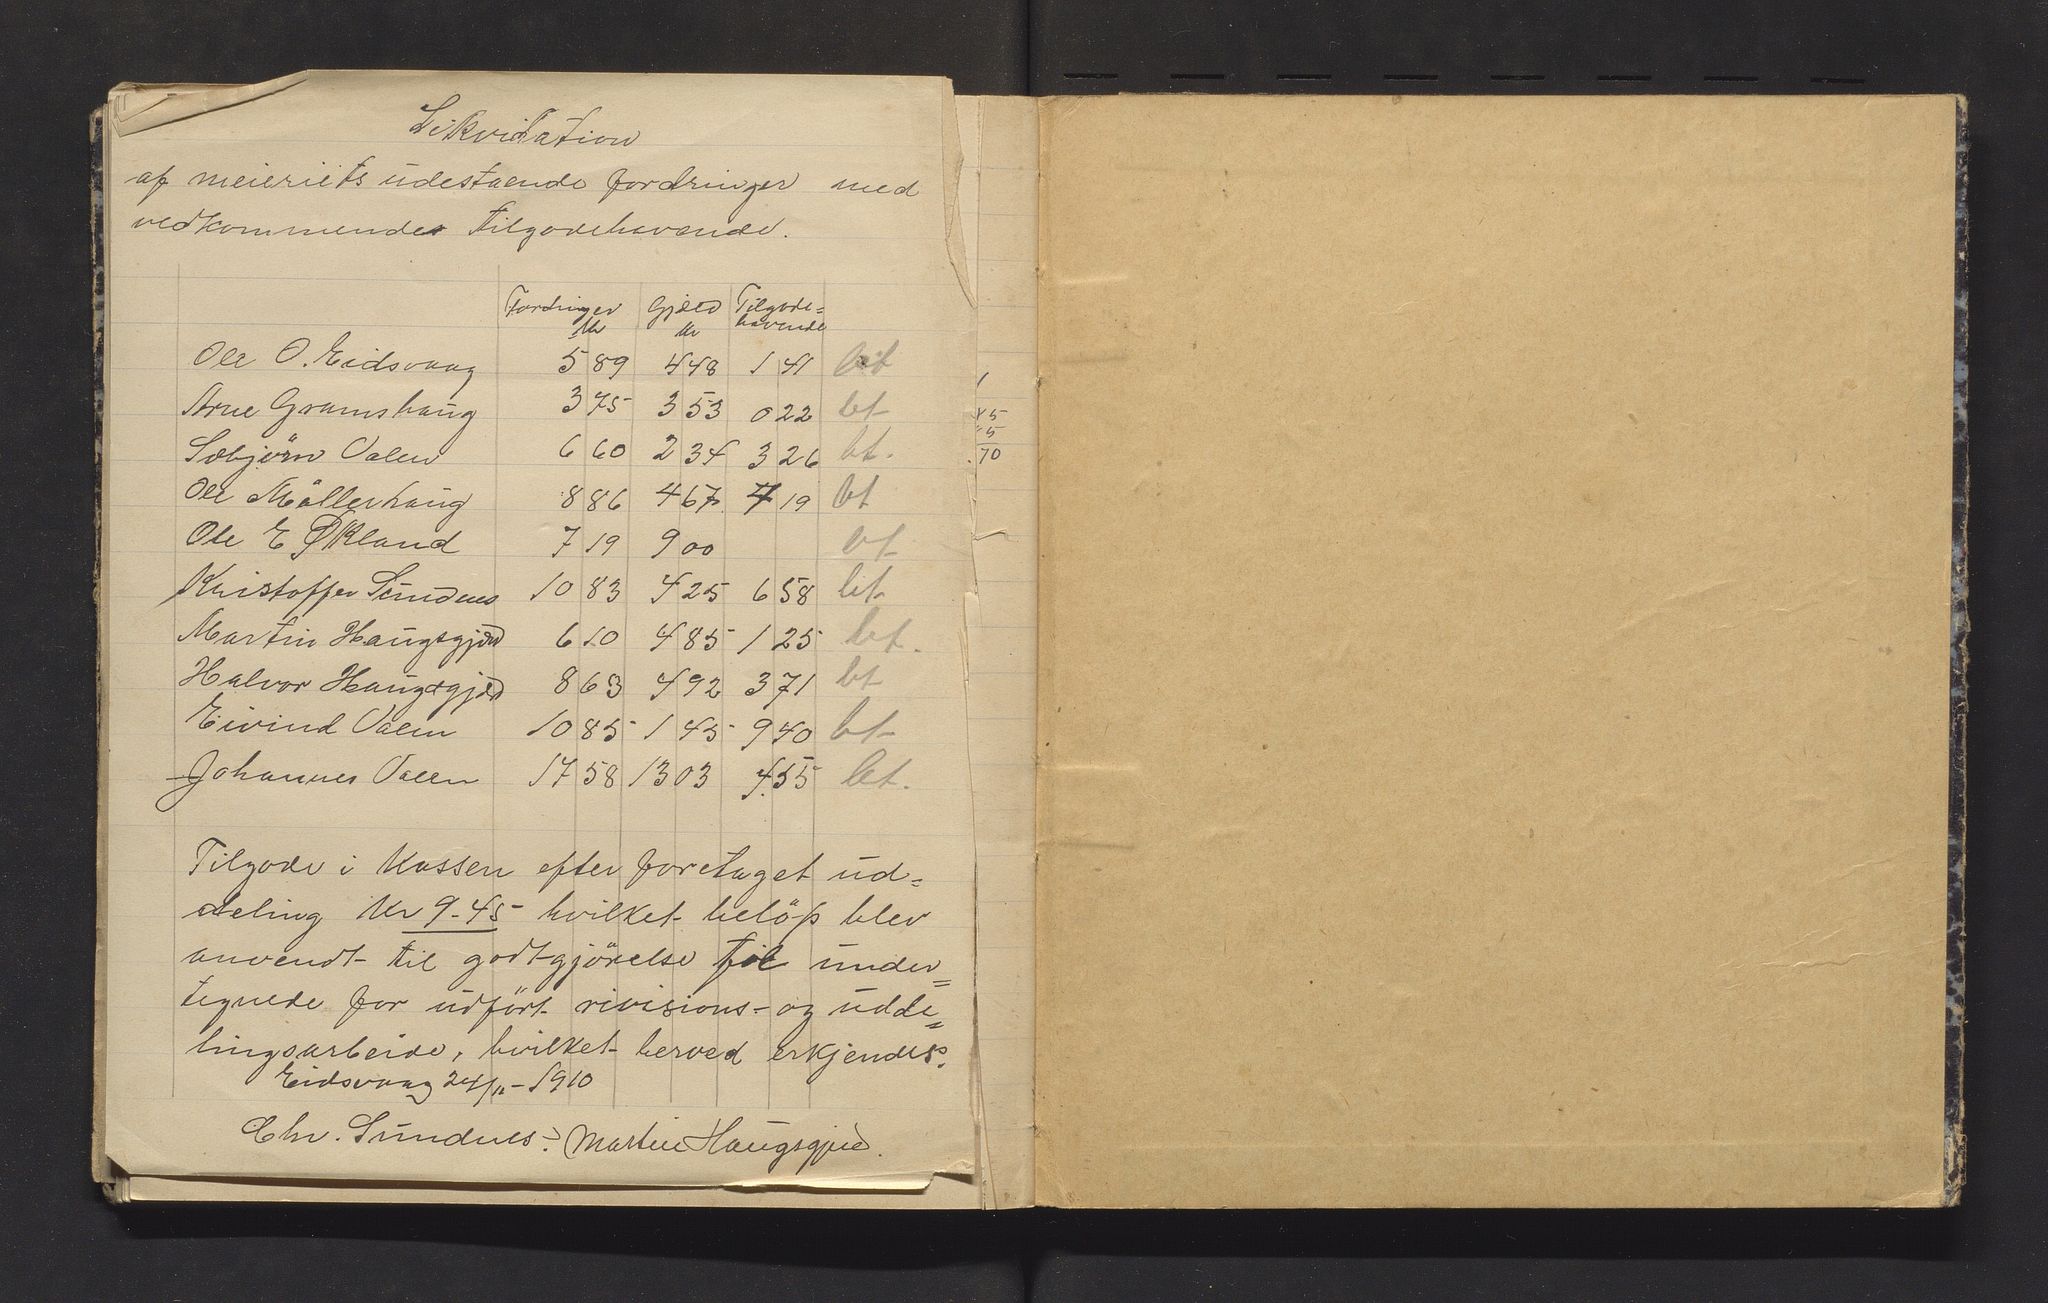 Likvidation
af meieriets udestaaende fordringer med
vedkommendes tilgodehavende.
Fordringer Gjæld Tilgode=
Kr Kr havende
Ole O. Eidsvaag 5 89 4 48 1 41 bet
Arne Gramshaug 3 75 3 53 0 22 bet
Sebjörn Valen 6 60 2 34 3 26 bt.
Ole Möllerhaug 8 86 4 67 4 19 bt
Ole E Økland 7 19 9 00 bt
Kristoffer Sundnes 10 83 4 25 6 58 bet
Martin Haugsgjerd 6 10 4 85 1 25 bet.
Halvor Haugsgjerd 8 63 4 92 3 71 bt
Eivind Valen 10 85 1 45 9 40 bt
Johannes Valen 17 58 13 03 4.55 bet.
Tilgode i Kassen efter foretaget ud=
deling Kr 9-45 hvilket belöp blev
anvendt til godtgjörelse til under=
tegnede for udfört rivisions- og udde=
lingsarbeide, hvilket herved erkjendes.
Eidsvaag 24/11-1910
Chr. Sundnes. Martin Haugsgjerd.
5
5
70